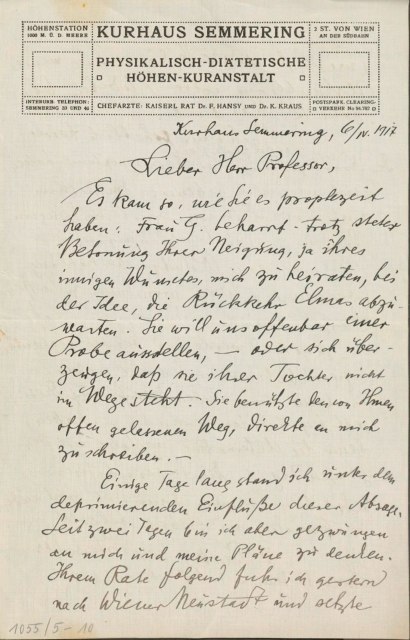 HÖHENSTATION
1000 M. Ü. D. MEERE
KURHAUS SEMMERING
2 ST. VON WIEN
AN DER SÜDBAHN
PHYSIKALISCH-DIÄTETISCHE
HÖHEN-KURANSTALT
INTERURB. TELEPHON:
SEMMERING 33 UND 40
CHEFÄRZTE: KAISERL. RAT Dr. F. HANSY UND Dr. K. KRAUS
POSTSPARK. CLEARING-
VERKEHR No
Kurhaus Semmering, 6/IV. 1917
Lieber Herr Professor,
Es kam so, wie Sie es prophezeit
haben: Frau G. beharrt – trotz steter
Betonung Ihrer Neigung, ja ihres
innigen Wunsches, mich zu heiraten, bei
der Idee, die Rückkehr Elmas abzu-
warten. Sie will uns offenbar einer
Probe ausstellen, – oder sich über-
zeugen, daß sie ihrer Tochter nicht
im Wege steht. Sie benützte den von Ihnen
offen gelassenen Weg, direkte an mich
zu schreiben. –
Einige Tage lang stand ich unter dem
deprimierenden Einfluße dieser Absage.
Seit zwei Tagen bin ich aber gezwungen
an mich und meine Pläne zu denken.
Ihrem Rate folgend fuhr ich gestern
nach Wiener Neustadt und setzte
1055/5-10